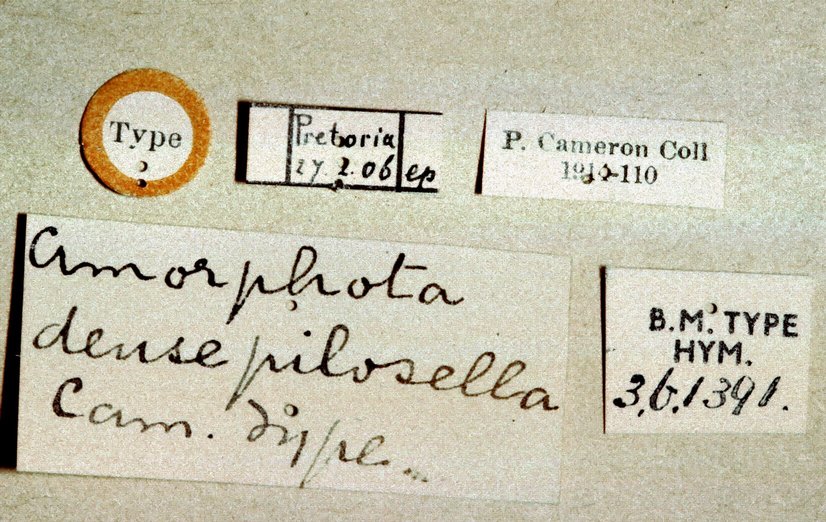 Type
Pretoria
27.2.06 ep
P. Cameron Coll
1914-110
Amorphota
dense pilosella
Cam. Type
B.M. TYPE
HYM.
3.b.1391.